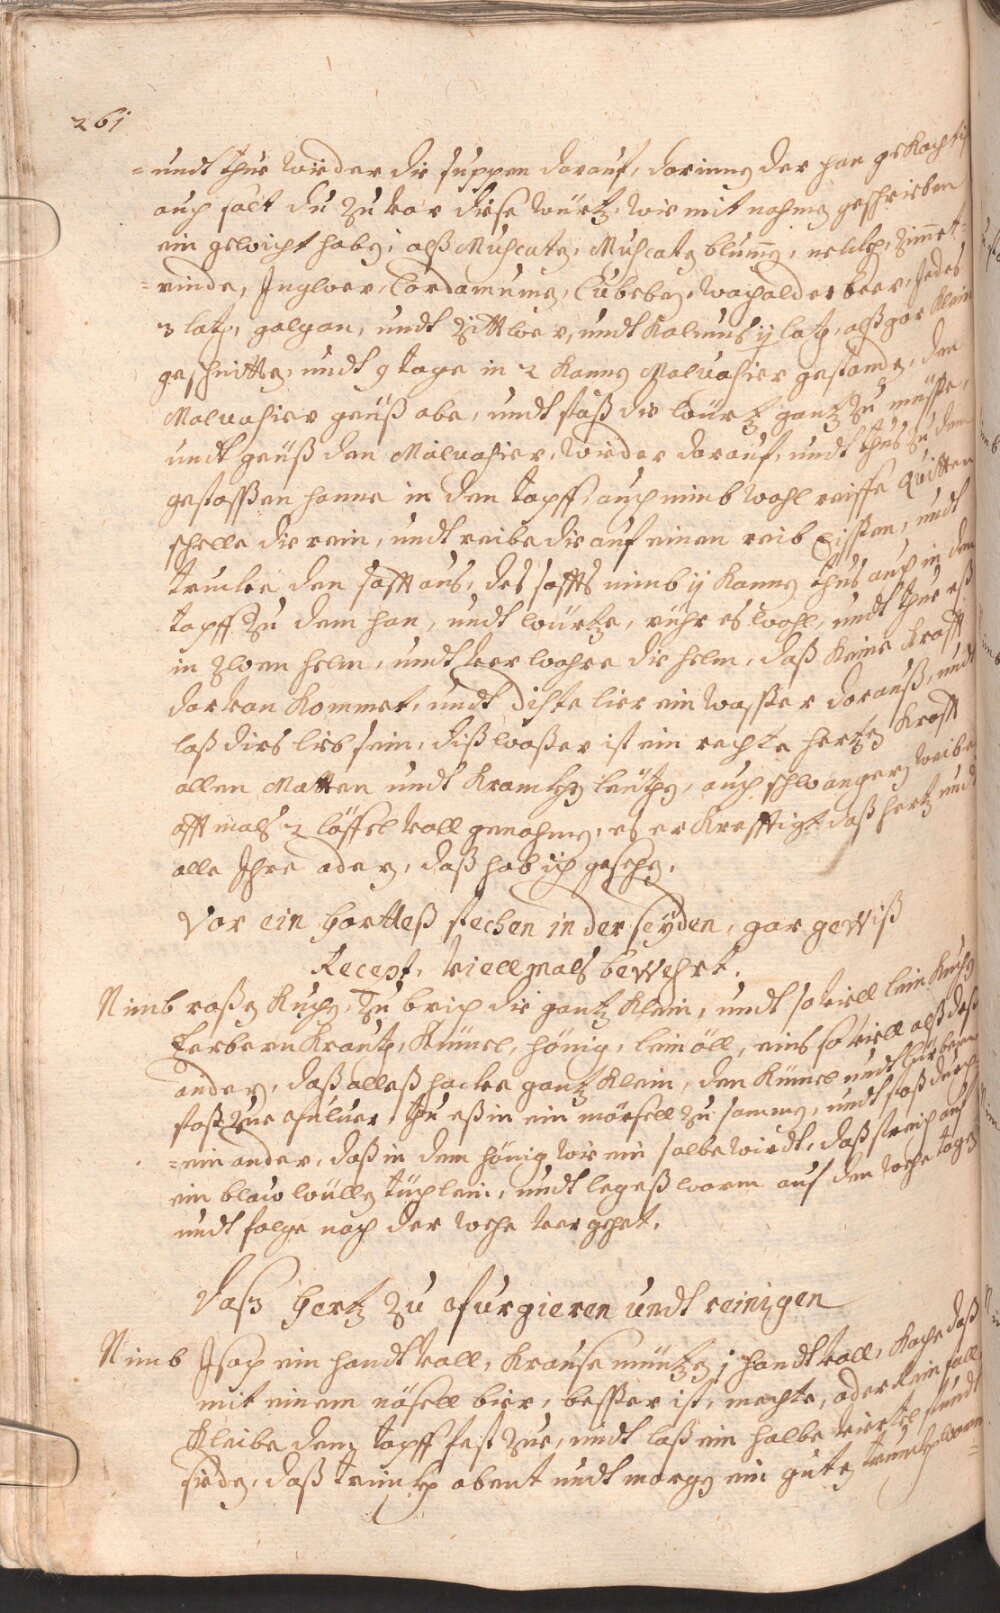 261
=undt thue wieder die suppen darauf, darinnen der han gekocht ist
auch salt du zuvor diese würtz, wie mit nahmen geschrieben
ein gewicht haben, alß Muscaten, Muscatenblumen, nelken, Zimmet=
=rinde, Ingwer, Cardamumen, Cubeben, wacholderbeer, Jedes
3 lath, galgan, undt Zittwer, undt Kalmus ij lath, alß gar klein
geschnitten, undt 9 tage in 2 kannen Malvasier gestanden, den
Malvasier geüß abe, undt stoß die würtz gantz zu muße,
undt geüß den Malvasier, wieder darauf, undt thus zu dem
gestossen hanne in den topff, auch nimb wohl reiffe Quitten
schelle die rein, undt reibe die auf einen reib Eissen, undt
trucke den safft aus, des saffts nimb ij kannen thus auch in den
topff zu dem han, undt würtze, rühr es wohl, undt thue eß
in zwen helm, undt verwahre die helm, daß keine krafft
darvon kommet, undt distelier ein wasser darauß, undt
laß dirs lieb sein, diß waßer ist ein rechte hertzen krafft
allen Matten undt krancken leüthen, auch schwangern weibern
offtmals 2 löffel voll genohmen, es erkrefftigt daß hertz undt
alle Ihre adern, daß hab ich gesehen.
Vor ein hartteß stechen in der seyden, gar gewiß
Recept, viellmals bewehrt.
Nimb roßen kuchen, Zubrich die gantz klein, undt so viell lein kuchen
kerbern Krauth, Kümel, hönig, leinöll, eins so viell alß daß
ander, daß alleß hacke gantz klein, den Kümel undt
stoß zue pulver, thu eß in ein mörsell zusammen, undt stoß durch
=einander, daß in dem hönig wie ein salbe wirdt, daß streich auf
ein blaw wüllen tüchlein, undt leg eß warm auf den wehe tagen
undt folge nach der wehe vergehet.
Daß hertz zu purgieren undt reinigen
Nimb Isop ein handt voll, krausemüntzen j handt voll, koche daß
mit einem nösell bier, besser ist, mechte, oder kein fall
kleibe denn topff fest zue, undt laß ein halbe viertel stundt
sieden, daß trinck abent undt morgen ein guten trunck warm